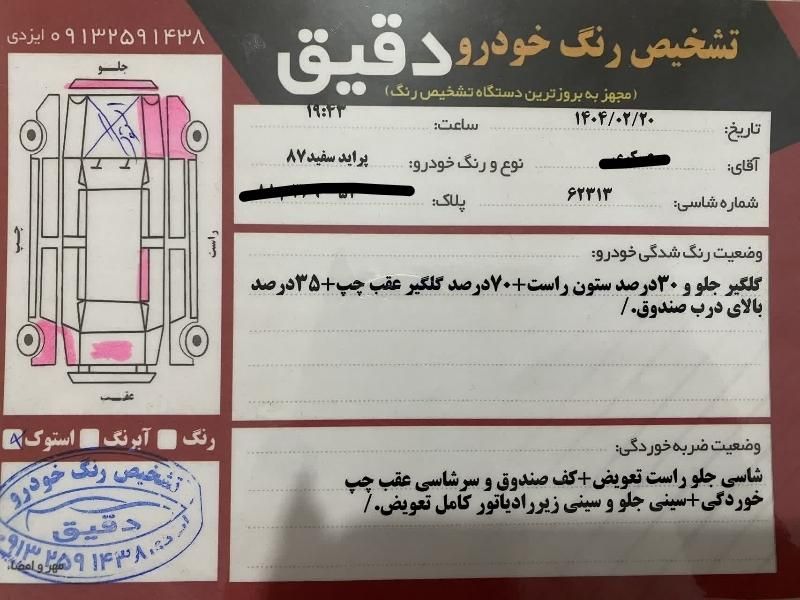 تشخیص رنگ خودرو دقیق
(مجهز به بروزترین دستگاه تشخیص رنگ)
۰۹۱۳۲۵۹۱۴۳۸ ایزدی
تاریخ: ۱۴۰۴/۰۲/۲۰ ساعت: ۱۹:۴۳
آقای: نوع و رنگ خودرو: پراید سفید۸۷
شماره شاسی: ۶۲۳۱۳ پلاک:
وضعیت رنگ شدگی خودرو:
گلگیر جلو و ۳۰درصد ستون راست+۷۰درصد گلگیر عقب چپ+۳۵درصد
بالای درب صندوق./
وضعیت ضربه خوردگی:
شاسی جلو راست تعویض+کف صندوق و سرشاسی عقب چپ
خوردگی+سینی جلو و سینی زیررادیاتور کامل تعویض./
جلو
چپ
راست
عقب
رنگ آبرنگ استوک
تشخیص رنگ خودرو
دقیق
۰۹۱۳۲۵۹۱۴۳۸
مهر و امضاء: